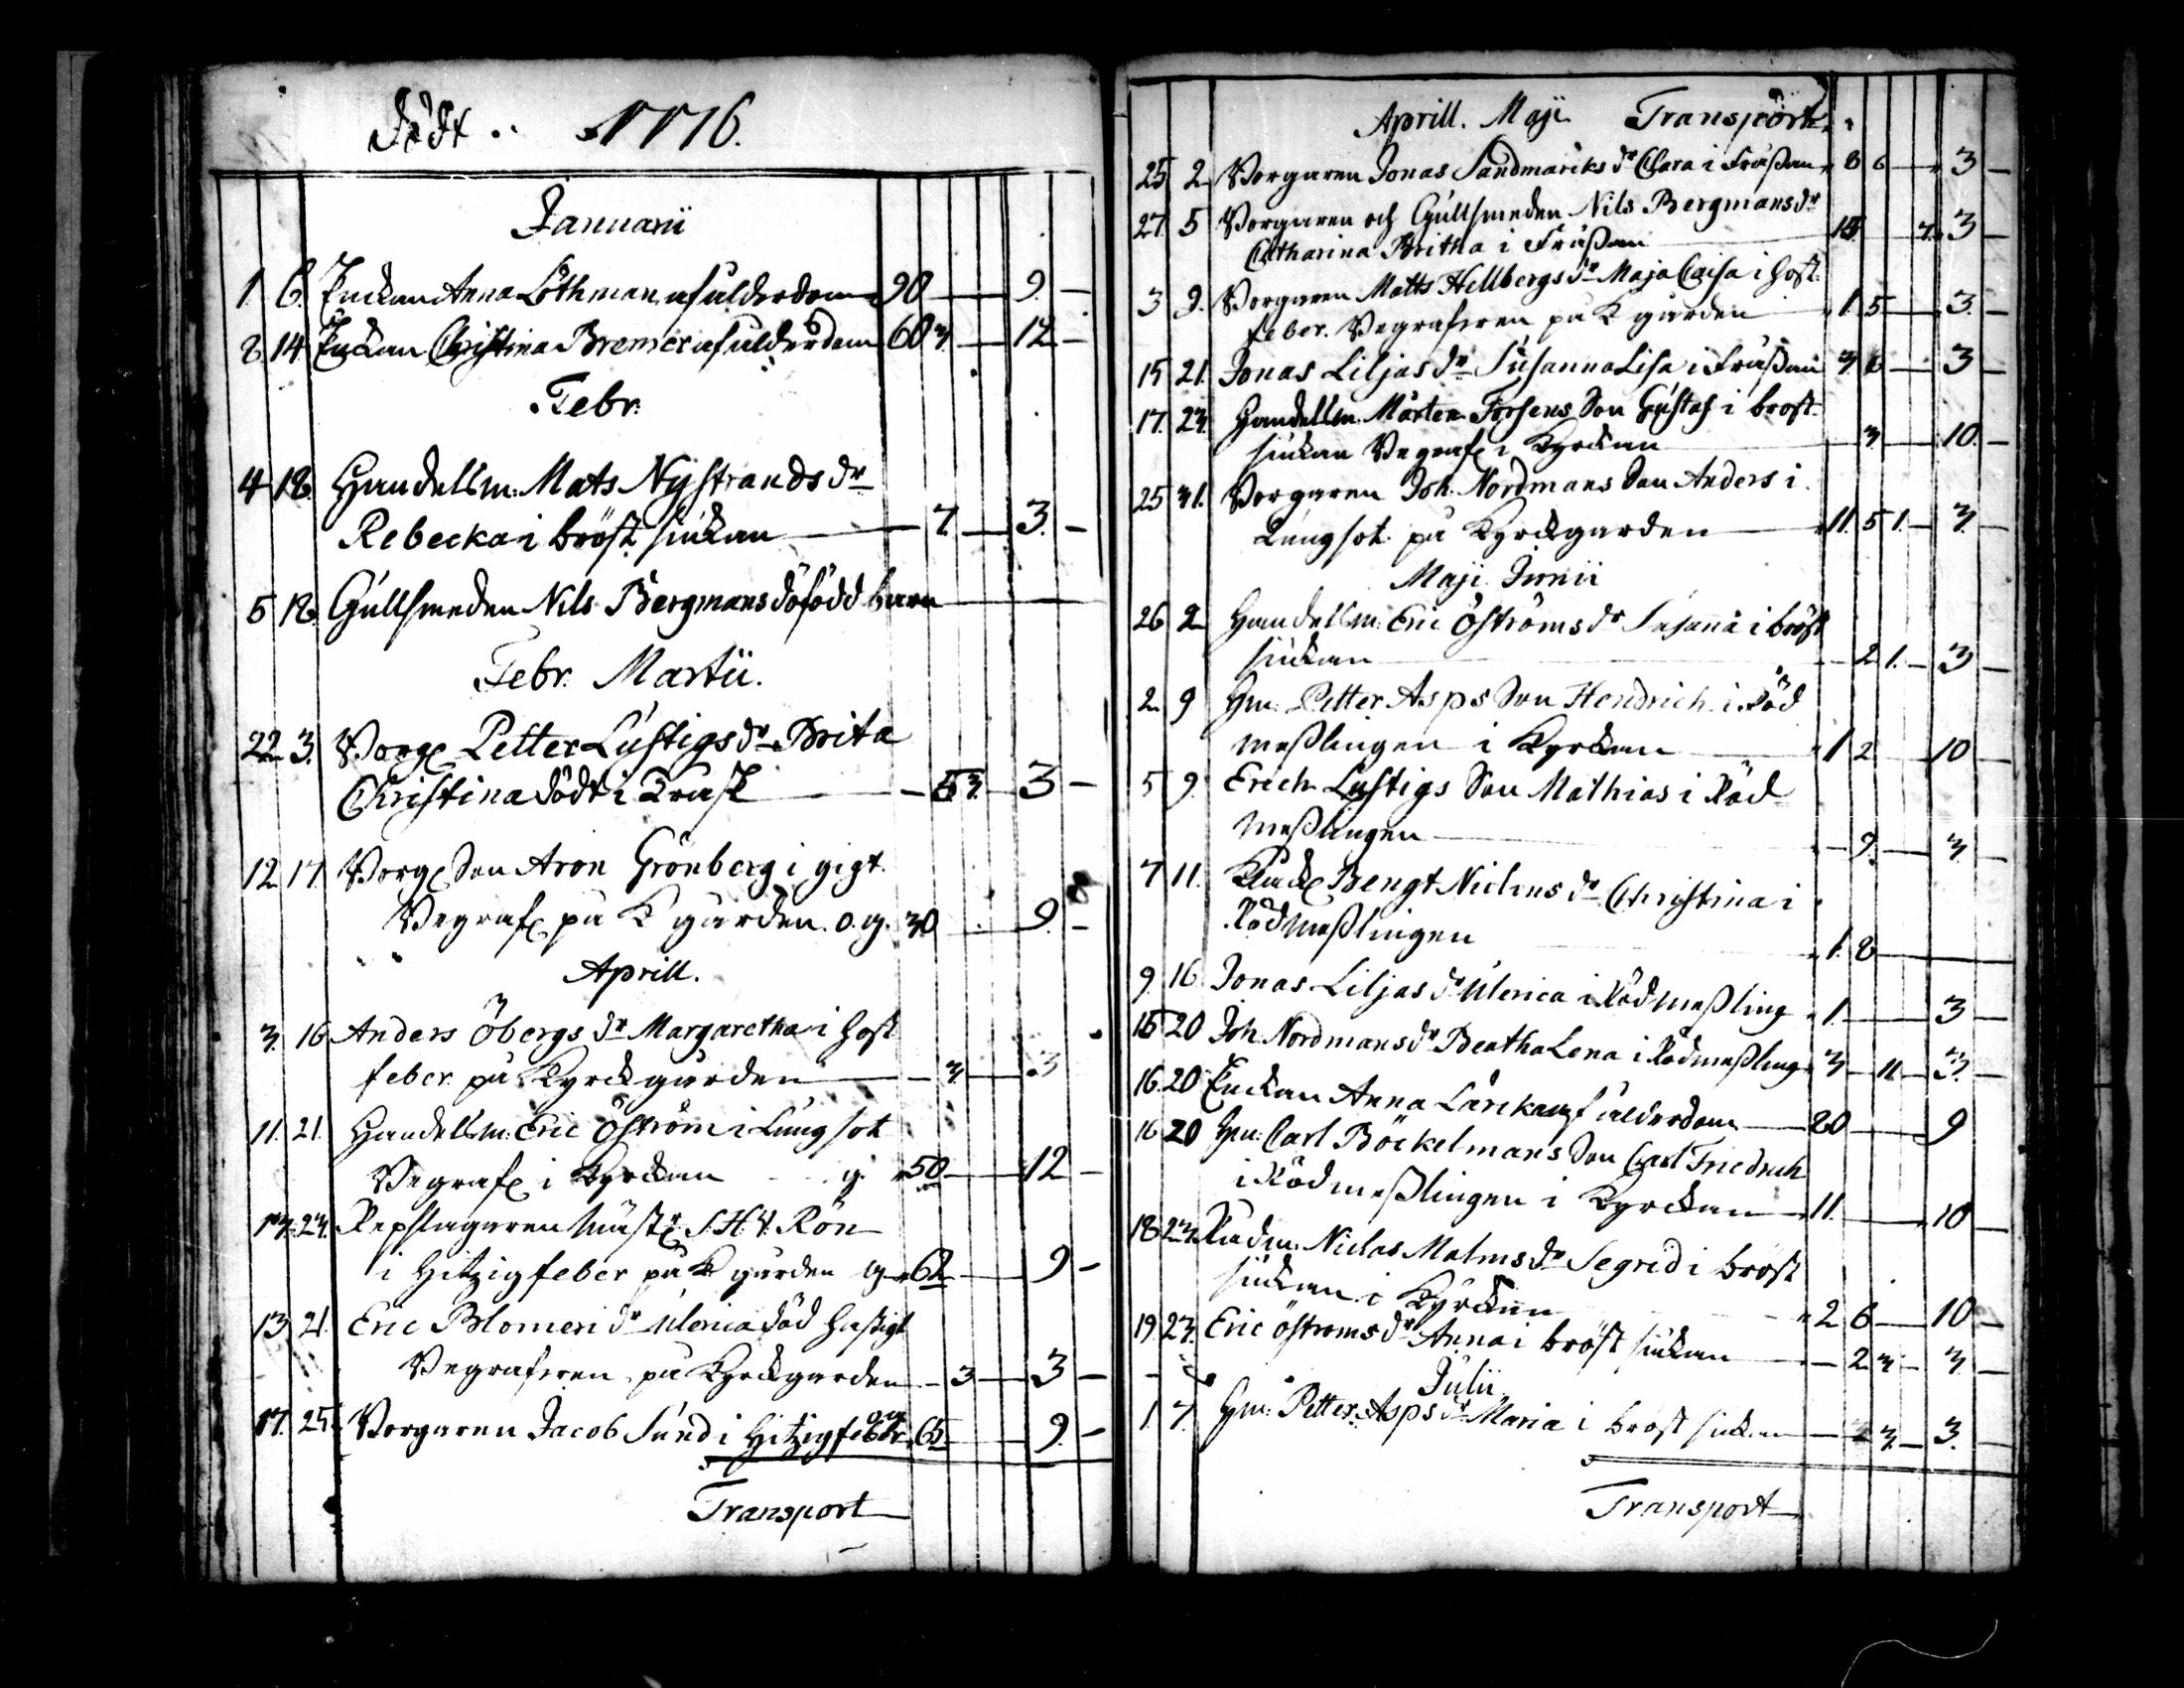 Födt .. 1776.
Januarii
1. 6. Enckan Anna Löthman af ålderdom 90 — 9. —
8. 14. Enckan Christina Bremer af ålderdom 60 3. — 12 —
Febr.
4 18. Handelsm: Mats Nystrands dr
Rebecka i bröst siukan — 7. — 3. —
5 18. Gullsmeden Nils Bergmans döfödd barn
Febr. Martii.
22 3. Borg Petter Lustigs dr Brita
Christina död i — 3. — 3 —
12 17. Borg Son Aron Grönberg i gigt.
Begraf på K gården. o. g. 30 9. —
Aprill.
3. 16 Anders Öbergs dr Margaretha i host
feber. på Kyrckgården — 3. — 3
11. 21. Handelsm: Eric Öström i Lungsot
Begraf i Kyrckan g. 50 — 12 —
13. 23. Repslagaren Mäst S. H. V. Rön
i Hitzig feber på K gården g. 62 — 9 —
13 21. Eric Blomeri dr Ulerica död hastigt
Begrafwen på Kyrckgården — 3 — 3 —
17. 25. Borgaren Jacob Sund i Hitzig feber o g 65 — 9. —
Transport
Aprill. Maji Transport
25 2 Borgaren Jonas Sandmarcks dr Clara i Fråssan 8 6 — 3 —
27. 5 Borgaren och Gullsmeden Nils Bergmans dr
Catharina Britha i Fråssan 7. 3 —
3 9. Borgaren Matts Hellbergs dr Maja Caisa i host
feber. Begrafwen på K gården 1. 5 — 3. —
15 21. Jonas Liljas dr Susanna Lisa i Fråssan 3. 6 — 3 —
17. 23. Handelsm. Mårten Forsens Son Gustaf i brost
siukan Begraf i Kyrckan — 3 — 10. —
25 31. Borgaren Joh. Nordmans Son Anders i
Lungsot på Kyrckgården — 11. 5 1. — 3. —
Maji Junii
26 2 Handelsm: Eric Öströms dr Susanna i bröst
siukan — 2 1. — 3 —
2 9 Hm: Petter Asps Son Hendrich i Röd
messlingen i Kyrckan — 1 2 — 10 —
5 9. Erich Lustigs Son Mathias i Röd
messlingen — 9. — 3. —
7 11. Bengt Niclins dr Christina i
Rödmesslingen 1. 8 —
9. 16 Jonas Liljas dr Ulerica i Rödmessling 1. — 3 —
15 20 Joh. Nordmans dr Beatha Lena i Rödmessling 3 — 11 — 3. —
16. 20 Enckan Anna af ålderdom — 80 — 9
16 20 Hm: Carl Böckelmans Son Carl Friedrich
i Rödmesslingen i Kyrckan — 11. — 10 —
18. 23. Rådm: Niclas Malms dr Segrid i bröst
siukan i Kyrckan 2 6 — 10 —
19. 23. Eric öströms dr Anna i bröst siukan — 2 3 — 3 —
Julii
1 7. Hm: Petter Asps dr Maria i bröst siukan — 3. — 3. —
Transport